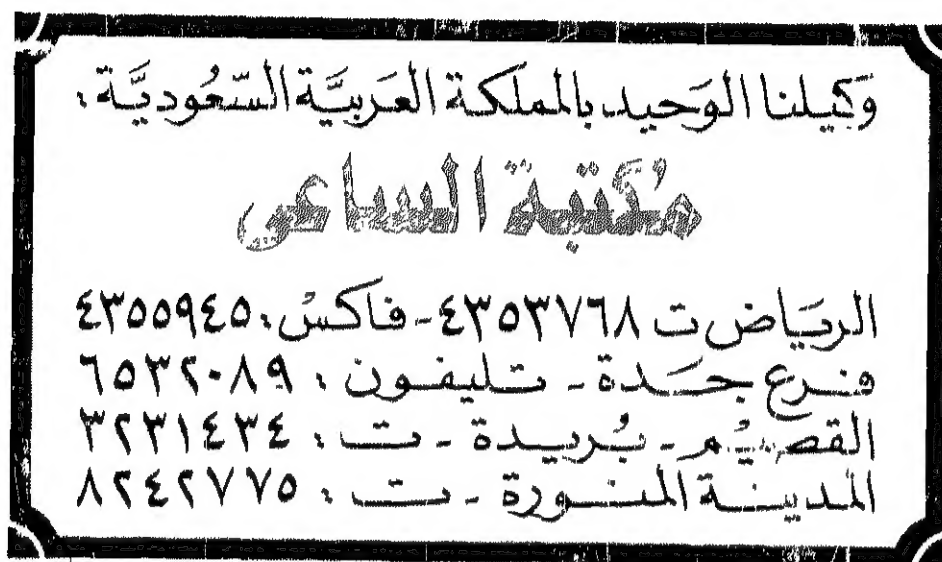 وَكيلنا الوَحيد بالمملكة العَربيَّة السّعُوديَّة :
مكتبة الساعي
الريَاض ت ٤٣٥٣٧٦٨ - فاكسْ : ٤٣٥٥٩٤٥
فرع جَدة - تليفون : ٦٥٣٢٠٨٩
القصيْم - بُريدة - ت : ٣٢٣١٤٣٤
المدينة المنورة - ت : ٨٢٤٢٧٧٥